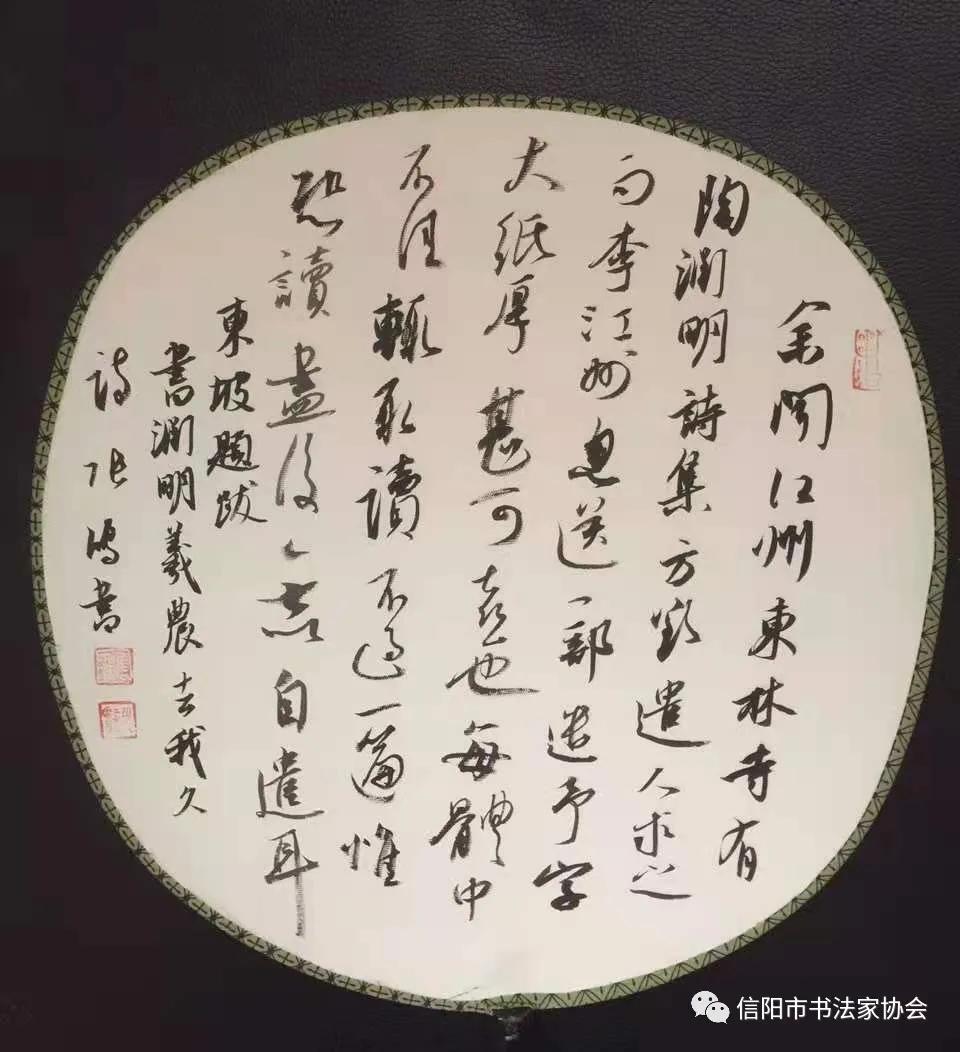 余聞江州東林寺有
陶淵明詩集方欲遣人求之
而李江州忽送一部遺予字
大紙厚甚可喜也每體中
不佳輒取讀不過一篇惟
恐讀盡後無自遣耳
東坡題跋
書淵明羲農去我久
詩張書
信阳市书法家协会